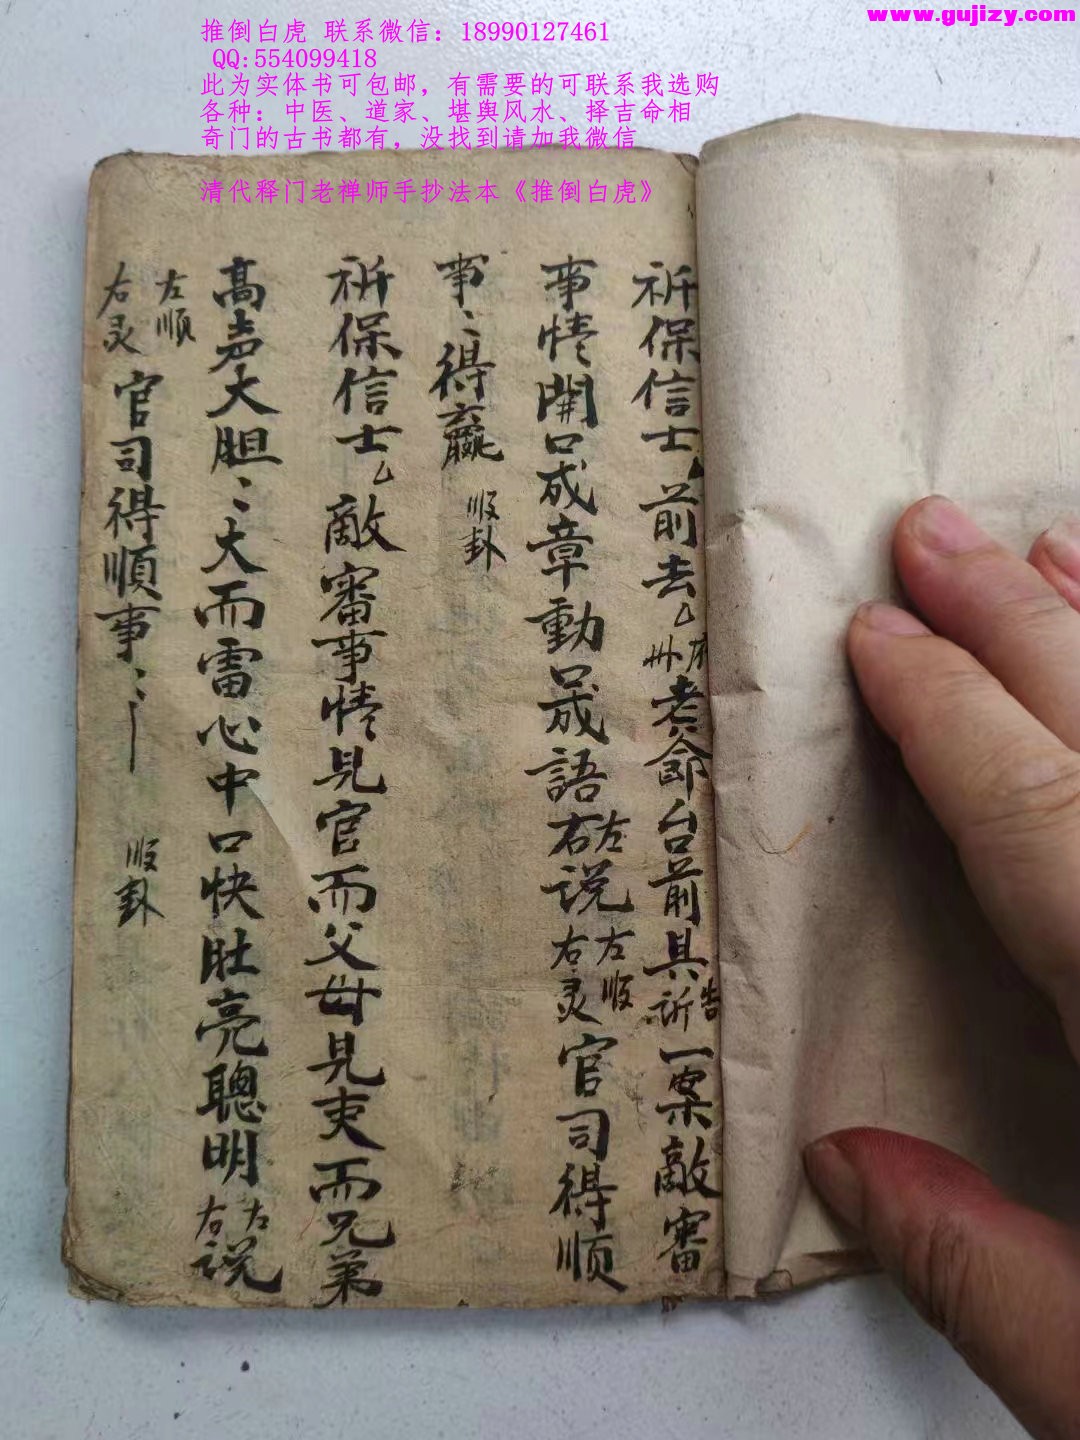 www.gujizy.com
推倒白虎 联系微信：18990127461
QQ:554099418
此为实体书可包邮，有需要的可联系我选购
各种：中医、道家、堪舆风水、择吉命相
奇门的古书都有，没找到请加我微信
清代释门老禅师手抄法本《推倒白虎》
祈保信士厶前去厶府州老爺台前具訴告一案敵審
事情開口成章動口成語左右说左顺右灵官司得顺
事〻得贏 順卦
祈保信士厶敵審事情見官而父母見吏而兄弟
高声大胆〻大而雷心中口快肚亮聰明左右说
左顺右灵官司得順事〻 順卦